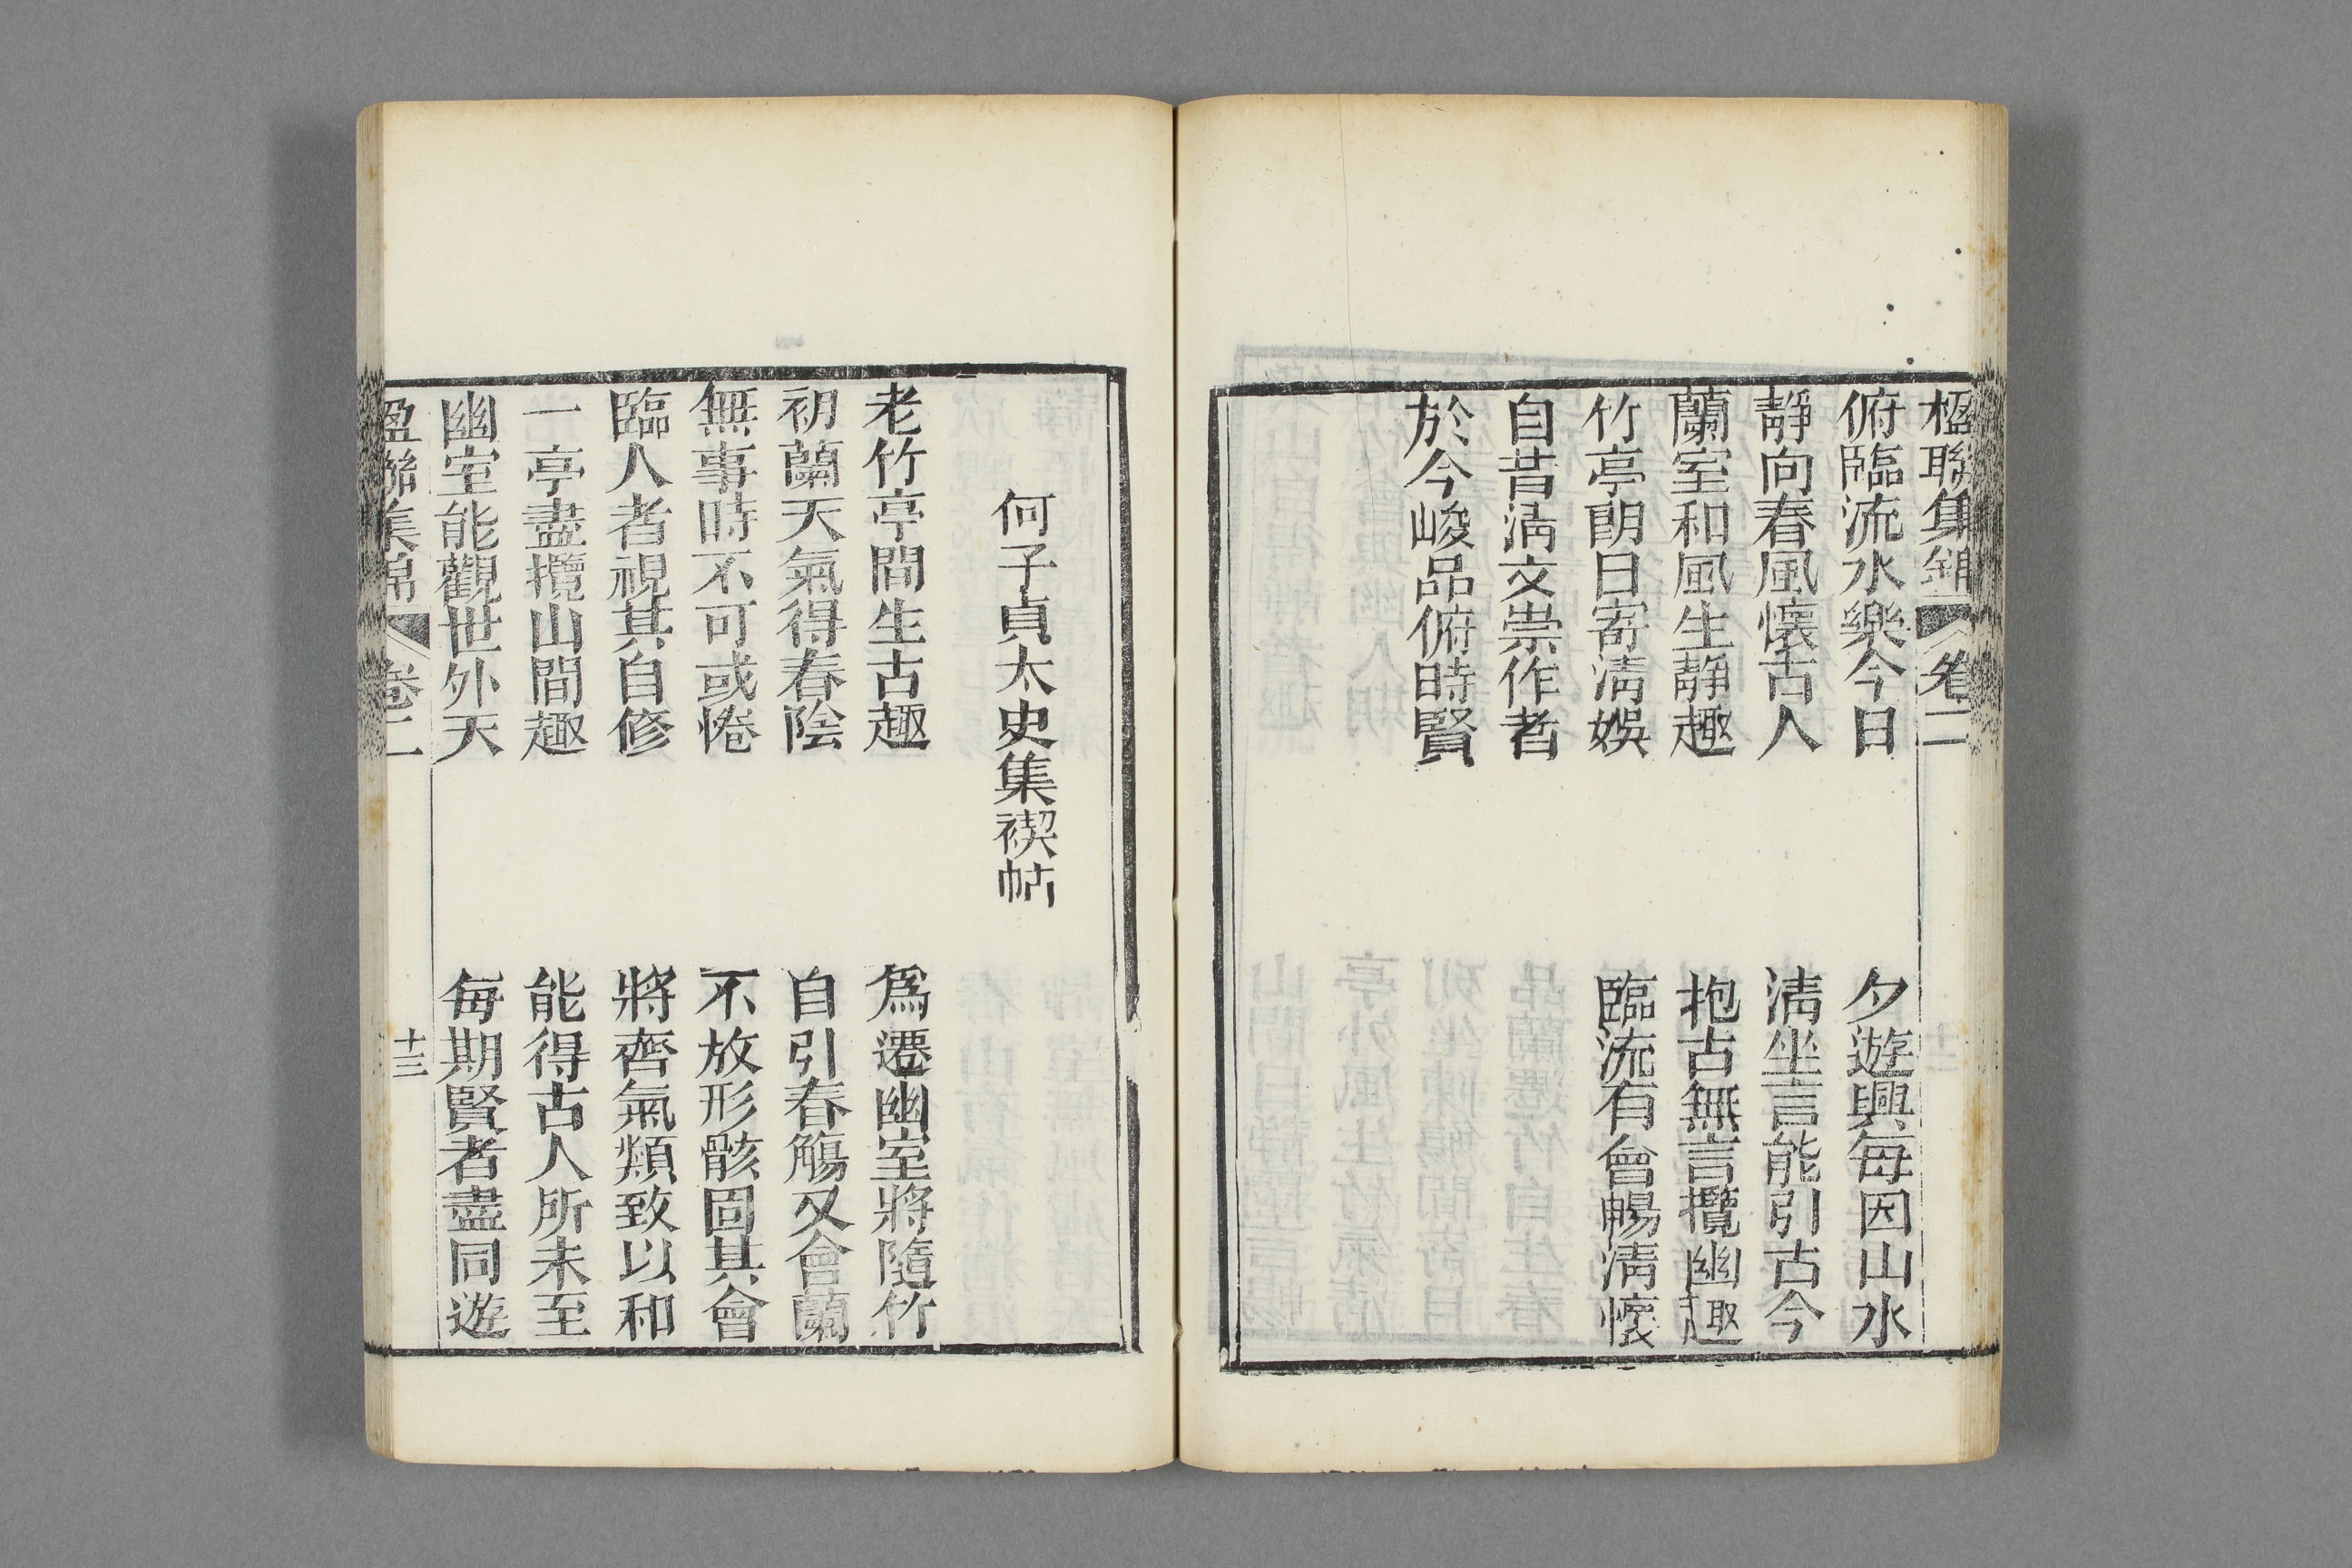 楹聯集錦 卷二
俯臨流水樂今日 夕遊興每因山水
靜向春風懷古人 清坐言能引古今
蘭室和風生靜趣 抱古無言攬幽趣
竹亭朗日寄清娛 臨流有會暢清懷
自昔清文崇作者
於今峻品俯時賢
何子貞太史集禊帖
老竹亭間生古趣 爲遷幽室將隨竹
初蘭天氣得春陰 自引春觴又會蘭
無事時不可或惓 不放形骸固其會
臨人者視其自修 將齊氣類致以和
一亭盡攬山間趣 能得古人所未至
幽室能觀世外天 每期賢者盡同遊
楹聯集錦 卷二 十三